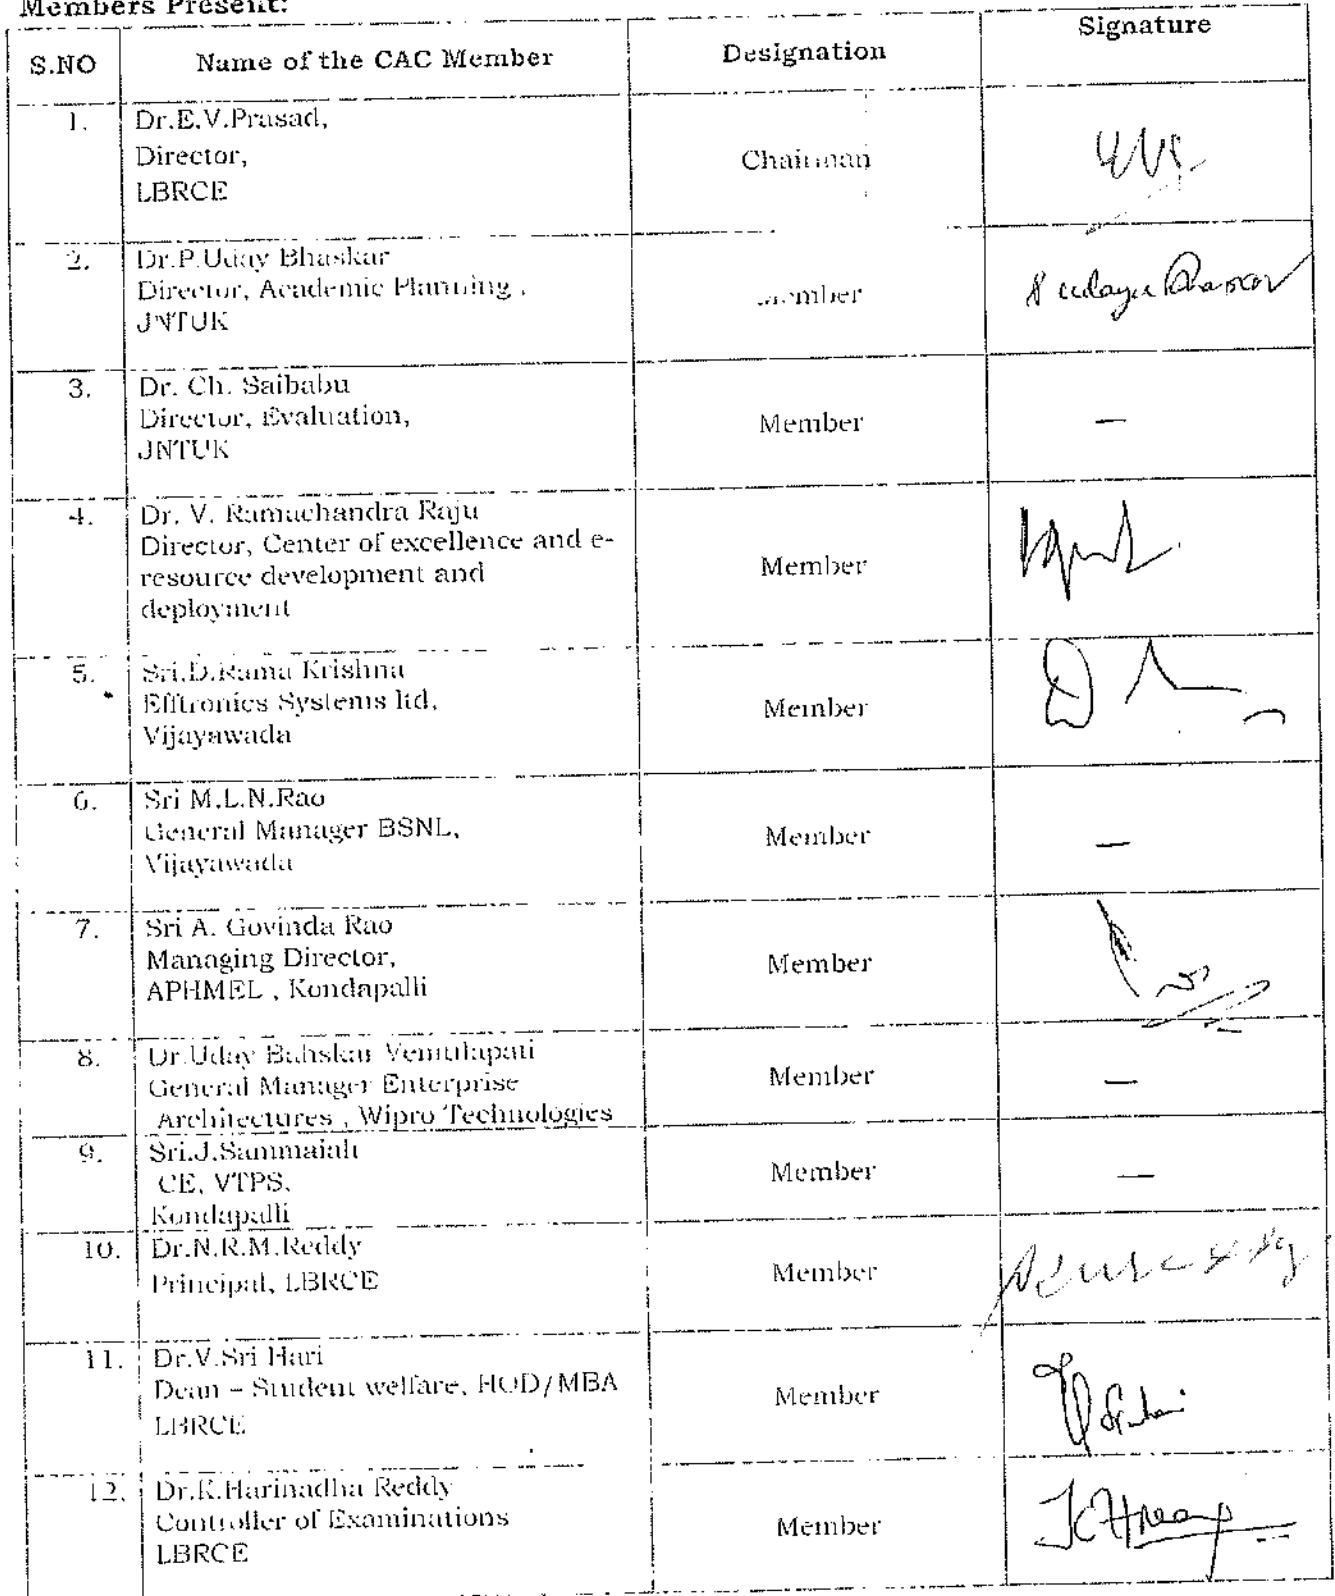 Members Present:
S.NO Name of the CAC Member Designation Signature
1. Dr.E.V.Prasad,
Director, Chairman
LBRCE
2. Dr.P.Uday Bhaskar
Director, Academic Planning , Member
JNTUK
3. Dr. Ch. Saibabu
Director, Evaluation, Member —
JNTUK
4. Dr. V. Ramachandra Raju
Director, Center of excellence and e-
resource development and Member
deployment
5. Sri.D.Rama Krishna
Efftronics Systems ltd, Member
Vijayawada
6. Sri M.L.N.Rao
General Manager BSNL, Member —
Vijayawada
7. Sri A. Govinda Rao
Managing Director, Member
APHMEL , Kondapalli
8. Dr.Uday Bahskar Vemulapati
General Manager Enterprise Member —
Architectures , Wipro Technologies
9. Sri.J.Sammaiah
CE, VTPS, Member —
Kondapalli
10. Dr.N.R.M.Reddy
Principal, LBRCE Member
11. Dr.V.Sri Hari
Dean – Student welfare, HOD/MBA Member
LBRCE
12. Dr.K.Harinadha Reddy
Controller of Examinations Member
LBRCE